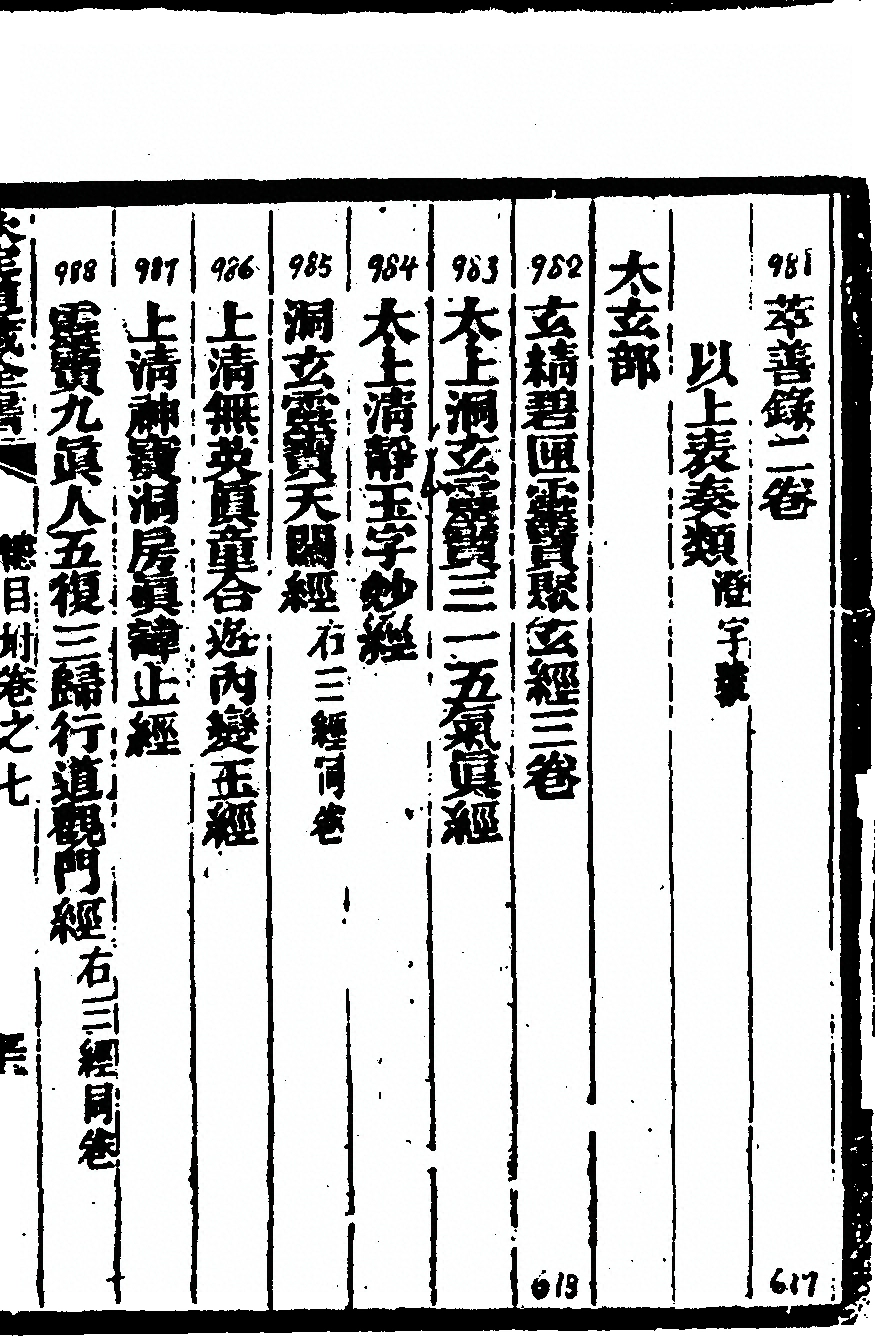 981 萃善錄二卷 617
以上表奏類 澄字號
太玄部
982 玄精碧匣靈寶聚玄經三卷 618
983 太上洞玄靈寶三一五氣眞經
984 太上清靜玉字妙經
985 洞玄靈寶天關經 右三經同卷
986 上清無英眞童合遊內變玉經
987 上清神寶洞房眞諱上經
988 靈寶九眞人五復三歸行道觀門經 右三經同卷
總目附卷之七